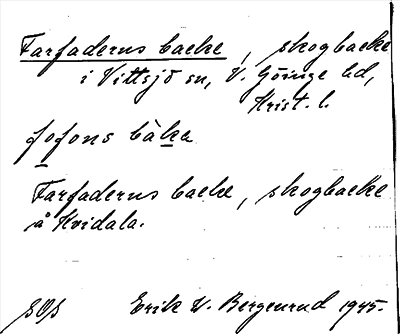 Farfaderns backe, skogbacke
i Vittsjö sn, V. Göinge hd,
Krist. l.
fofons bàka
Farfaderns backe, skogbacke
å Hvidala.
Erik W. Bergenrud 1945.